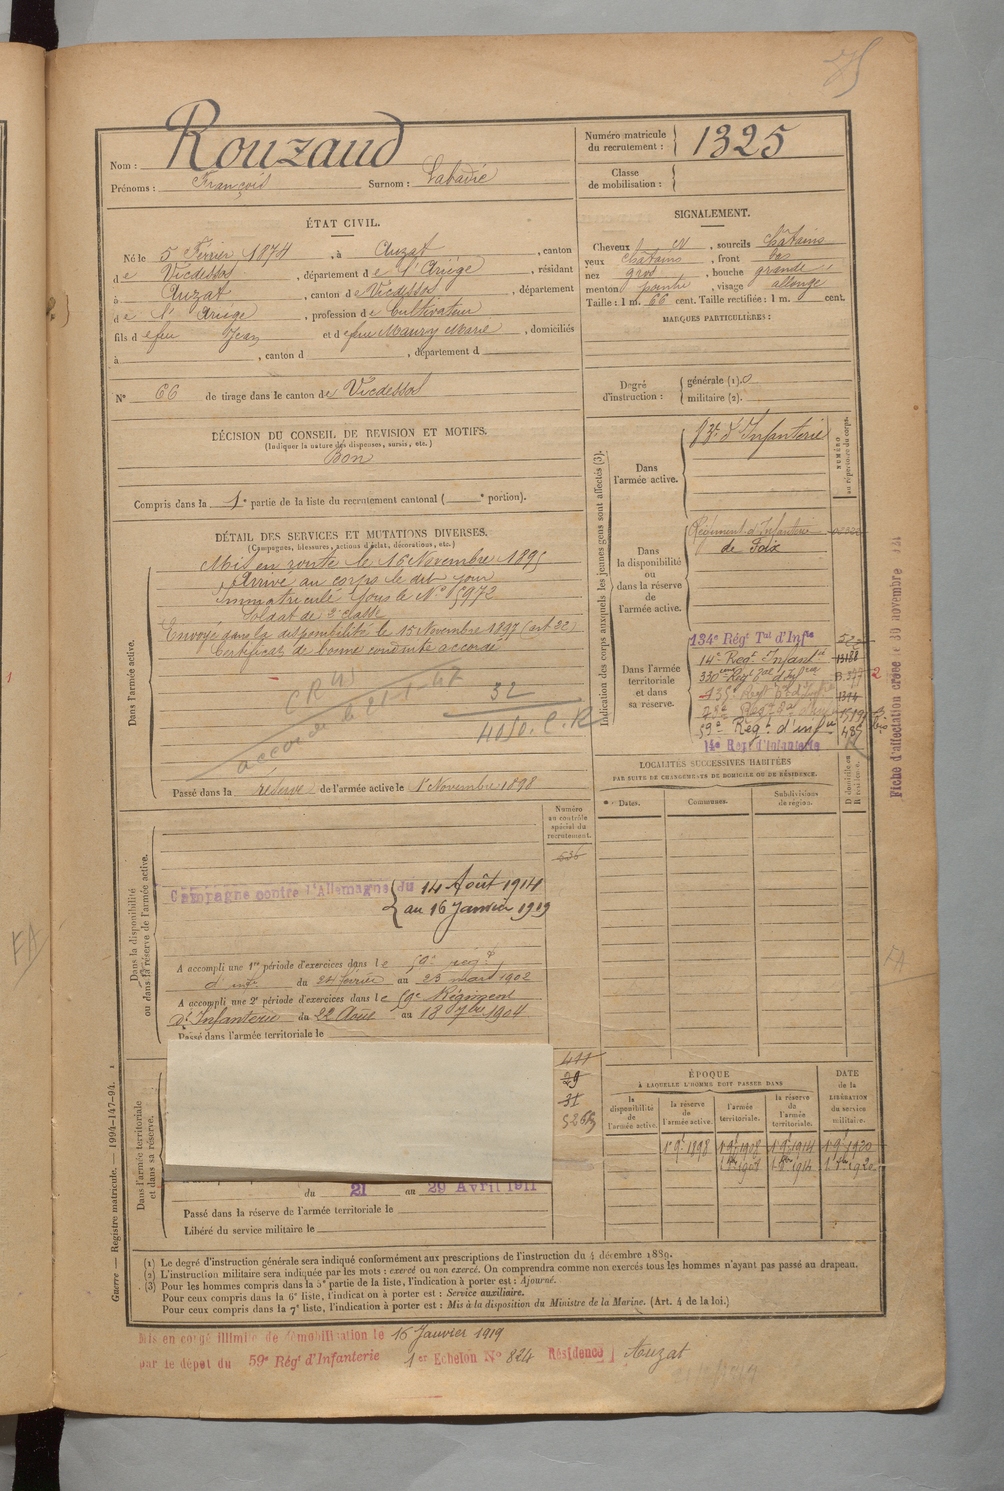 Nom : Rouzaud
Prénoms : François Surnom : Labadie
Numéro matricule du recrutement : 1325
Classe de mobilisation :
ÉTAT CIVIL.
Né le 5 Février 1874, à Auzat, canton
de Vicdessos, département de l'Ariège, résidant
à Auzat, canton de Vicdessos, département
de l'Ariège, profession de Cultivateur
fils de feu Jean et de feu Maury Marie, domiciliés
à , canton d , département d
N° 66 de tirage dans le canton de Vicdessos
SIGNALEMENT.
Cheveux N, sourcils châtains
yeux châtains, front bas
nez gros, bouche grande
menton pointu, visage allongé
Taille : 1 m. 66 cent. Taille rectifiée : 1 m. cent.
MARQUES PARTICULIÈRES :
Degré d'instruction : générale (1). 0
militaire (2).
DÉCISION DU CONSEIL DE REVISION ET MOTIFS.
(Indiquer la nature des dispenses, sursis, etc.)
Bon
Compris dans la 1e partie de la liste du recrutement cantonal ( e portion).
DÉTAIL DES SERVICES ET MUTATIONS DIVERSES.
(Campagnes, blessures, actions d'éclat, décorations, etc.)
Dans l'armée active.
Mis en route le 16 Novembre 1895
Arrivé au corps le dit jour
Immatriculé sous le N° 5972
Soldat de 2e classe
Envoyé dans la disponibilité le 15 Novembre 1897 (art 22)
Certificat de bonne conduite accordé
32
Passé dans la réserve de l'armée active le 1er Novembre 1898
Indication des corps auxquels les jeunes gens sont affectés (3).
NUMÉRO au répertoire du corps.
Dans l'armée active.
d'Infanterie
Dans la disponibilité ou dans la réserve de l'armée active.
Régiment d'Infanterie
de Foix
Dans l'armée territoriale et dans sa réserve.
134e Régt Tal d'Infie
14e Regt Infant
59e Regt d'infie
14e Regt d'Infanterie
Fiche d'affectation créée le 30 novembre
LOCALITÉS SUCCESSIVES HABITÉES
PAR SUITE DE CHANGEMENTS DE DOMICILE OU DE RÉSIDENCE.
Dates.
Communes.
Subdivisions de région.
D domicile ou R résidence.
Dans la disponibilité ou dans la réserve de l'armée active.
Numéro au contrôle spécial du recrutement.
636
Campagne contre l'Allemagne du 14 Août 1914
au 16 Janvier 1919
A accompli une 1re période d'exercices dans le 59e régt
d'inf. du 24 février au 23 mars 1902
A accompli une 2e période d'exercices dans le 59e Régiment
d'Infanterie du 22 Aout au 18 7bre 1904
Passé dans l'armée territoriale le
Dans l'armée territoriale et dans sa réserve.
29
31
du 21 au 29 Avril 1911
Passé dans la réserve de l'armée territoriale le
Libéré du service militaire le
ÉPOQUE
À LAQUELLE L'HOMME DOIT PASSER DANS
la disponibilité de l'armée active.
la réserve de l'armée active.
l'armée territoriale.
la réserve de l'armée territoriale.
DATE de la LIBÉRATION du service militaire.
1er 9e 1898 1er 9e 1908 1er 9e 1914 1er 9e 1920
Guerre — Registre matricule. — 1994-147-94.
(1) Le degré d'instruction générale sera indiqué conformément aux prescriptions de l'instruction du 4 décembre 1889.
(2) L'instruction militaire sera indiquée par les mots : exercé ou non exercé. On comprendra comme non exercés tous les hommes n'ayant pas passé au drapeau.
(3) Pour les hommes compris dans la 5e partie de la liste, l'indication à porter est : Ajourné.
Pour ceux compris dans la 6e liste, l'indication à porter est : Service auxiliaire.
Pour ceux compris dans la 7e liste, l'indication à porter est : Mis à la disposition du Ministre de la Marine. (Art. 4 de la loi.)
Mis en congé illimité de démobilisation le 16 Janvier 1919
par le dépôt du 59e Régt d'Infanterie 1er Echelon N° 824 Résidence Auzat
FA
FA